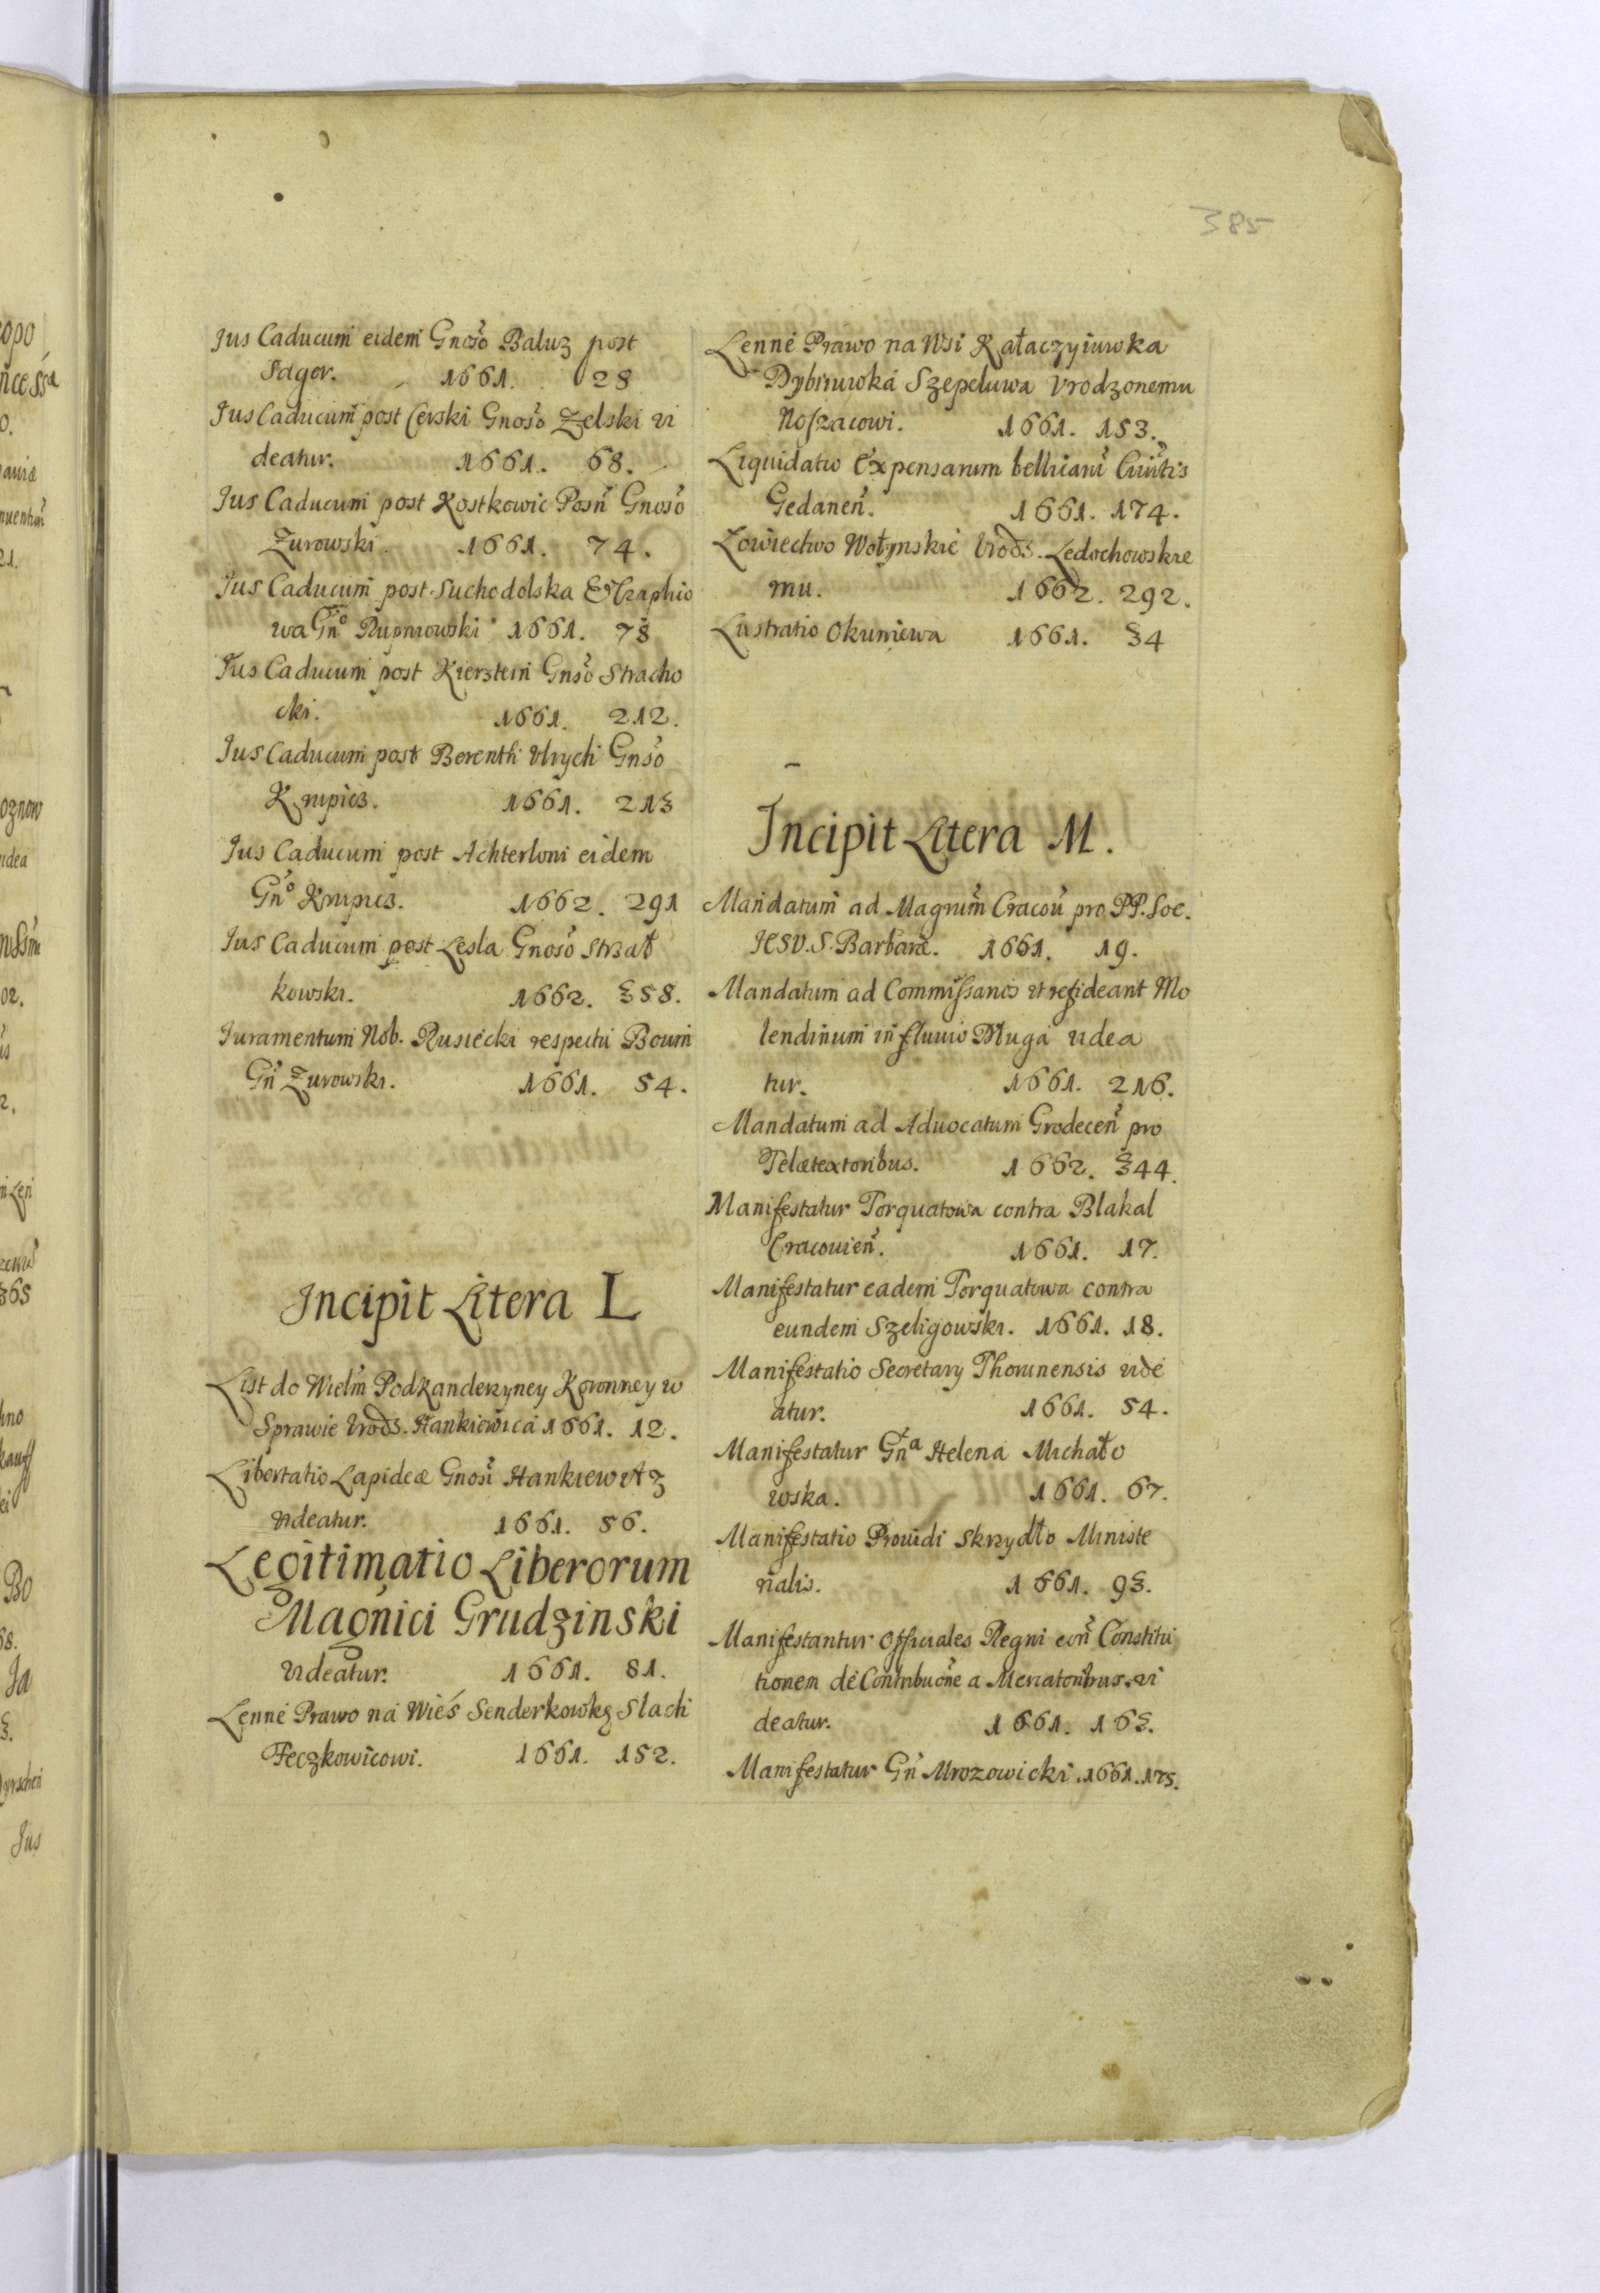 385
Jus Caducum eidem Gnoso Baluz post
Jager. 1661. 28
Jus Caducum post Cerski Gnoso Zelski vi
deatur. 1661. 68.
Jus Caducum post Kostkowic Posn Gnoso
Zurowski. 1661. 74.
Jus Caducum post Suchodolska &
wa Gno Rupniowski 1661. 78
Jus Caducum post Kierstein Gnso Stracho
cki. 1661. 212.
Jus Caducum post Berenth Vlrych Gnso
Krupicz. 1661. 213
Jus Caducum post Achterloni eidem
Gno Krupicz. 1662. 291
Jus Caducum post Lesla Gnoso Strzał
kowski. 1662. 358.
Juramentum Nob. Rusiecki respectu Boum
Gn Zurowski. 1661. 54.
Incipit Litera L
List do Wielm Podkanclerzyney Koronney w
Sprawie Vrodz. Hankiewica 1661. 12.
Libertatio Lapideæ Gnosi Hankiewitz
videatur. 1661. 56.
Legitimatio Liberorum
Magnici Grudzinski
videatur. 1661. 81.
Lenne Prawo na Wieś Senderkowkę Slach
Feczkowicowi. 1661. 152.
Lenne Prawo na Wsi Kałaczyiuwka
Dybruwka Szepeluwa Vrodzonemu
Noszacowi. 1661. 153.
Liquidatio Expensarum bellicarum Ciuitis
Gedanen. 1661. 174.
Łowiectwo Wołynskie Vrodz. Ledochowskie
mu. 1662. 292.
Lustratio Okuniewa 1661. 34
Incipit Litera M.
Mandatum ad Magrum Cracou pro PP. Soc.
JESV. S. Barbaræ. 1661. 19.
Mandatum ad Commissarios vt resideant Mo
lendinum in fluuio Dluga videa
tur. 1661. 216.
Mandatum ad Aduocatum Grodecen pro
Telætextoribus. 1662. 344.
Manifestatur Torquatowa contra Blakal
Cracouien. 1661. 17.
Manifestatur eadem Torquatowa contra
eundem Szeligowski. 1661. 18.
Manifestatio Secretary Thorunensis vide
atur. 1661. 54.
Manifestatur Gna Helena Michało
wska. 1661. 67.
Manifestatio Prouidi Skrzydło Ministe
rialis. 1661. 93.
Manifestantur Officiales Regni con Constitu
tionem de Contribuone a Mercatoribus. vi
deatur. 1661. 163.
Manifestatur Gn Mrozowicki. 1661. 175.